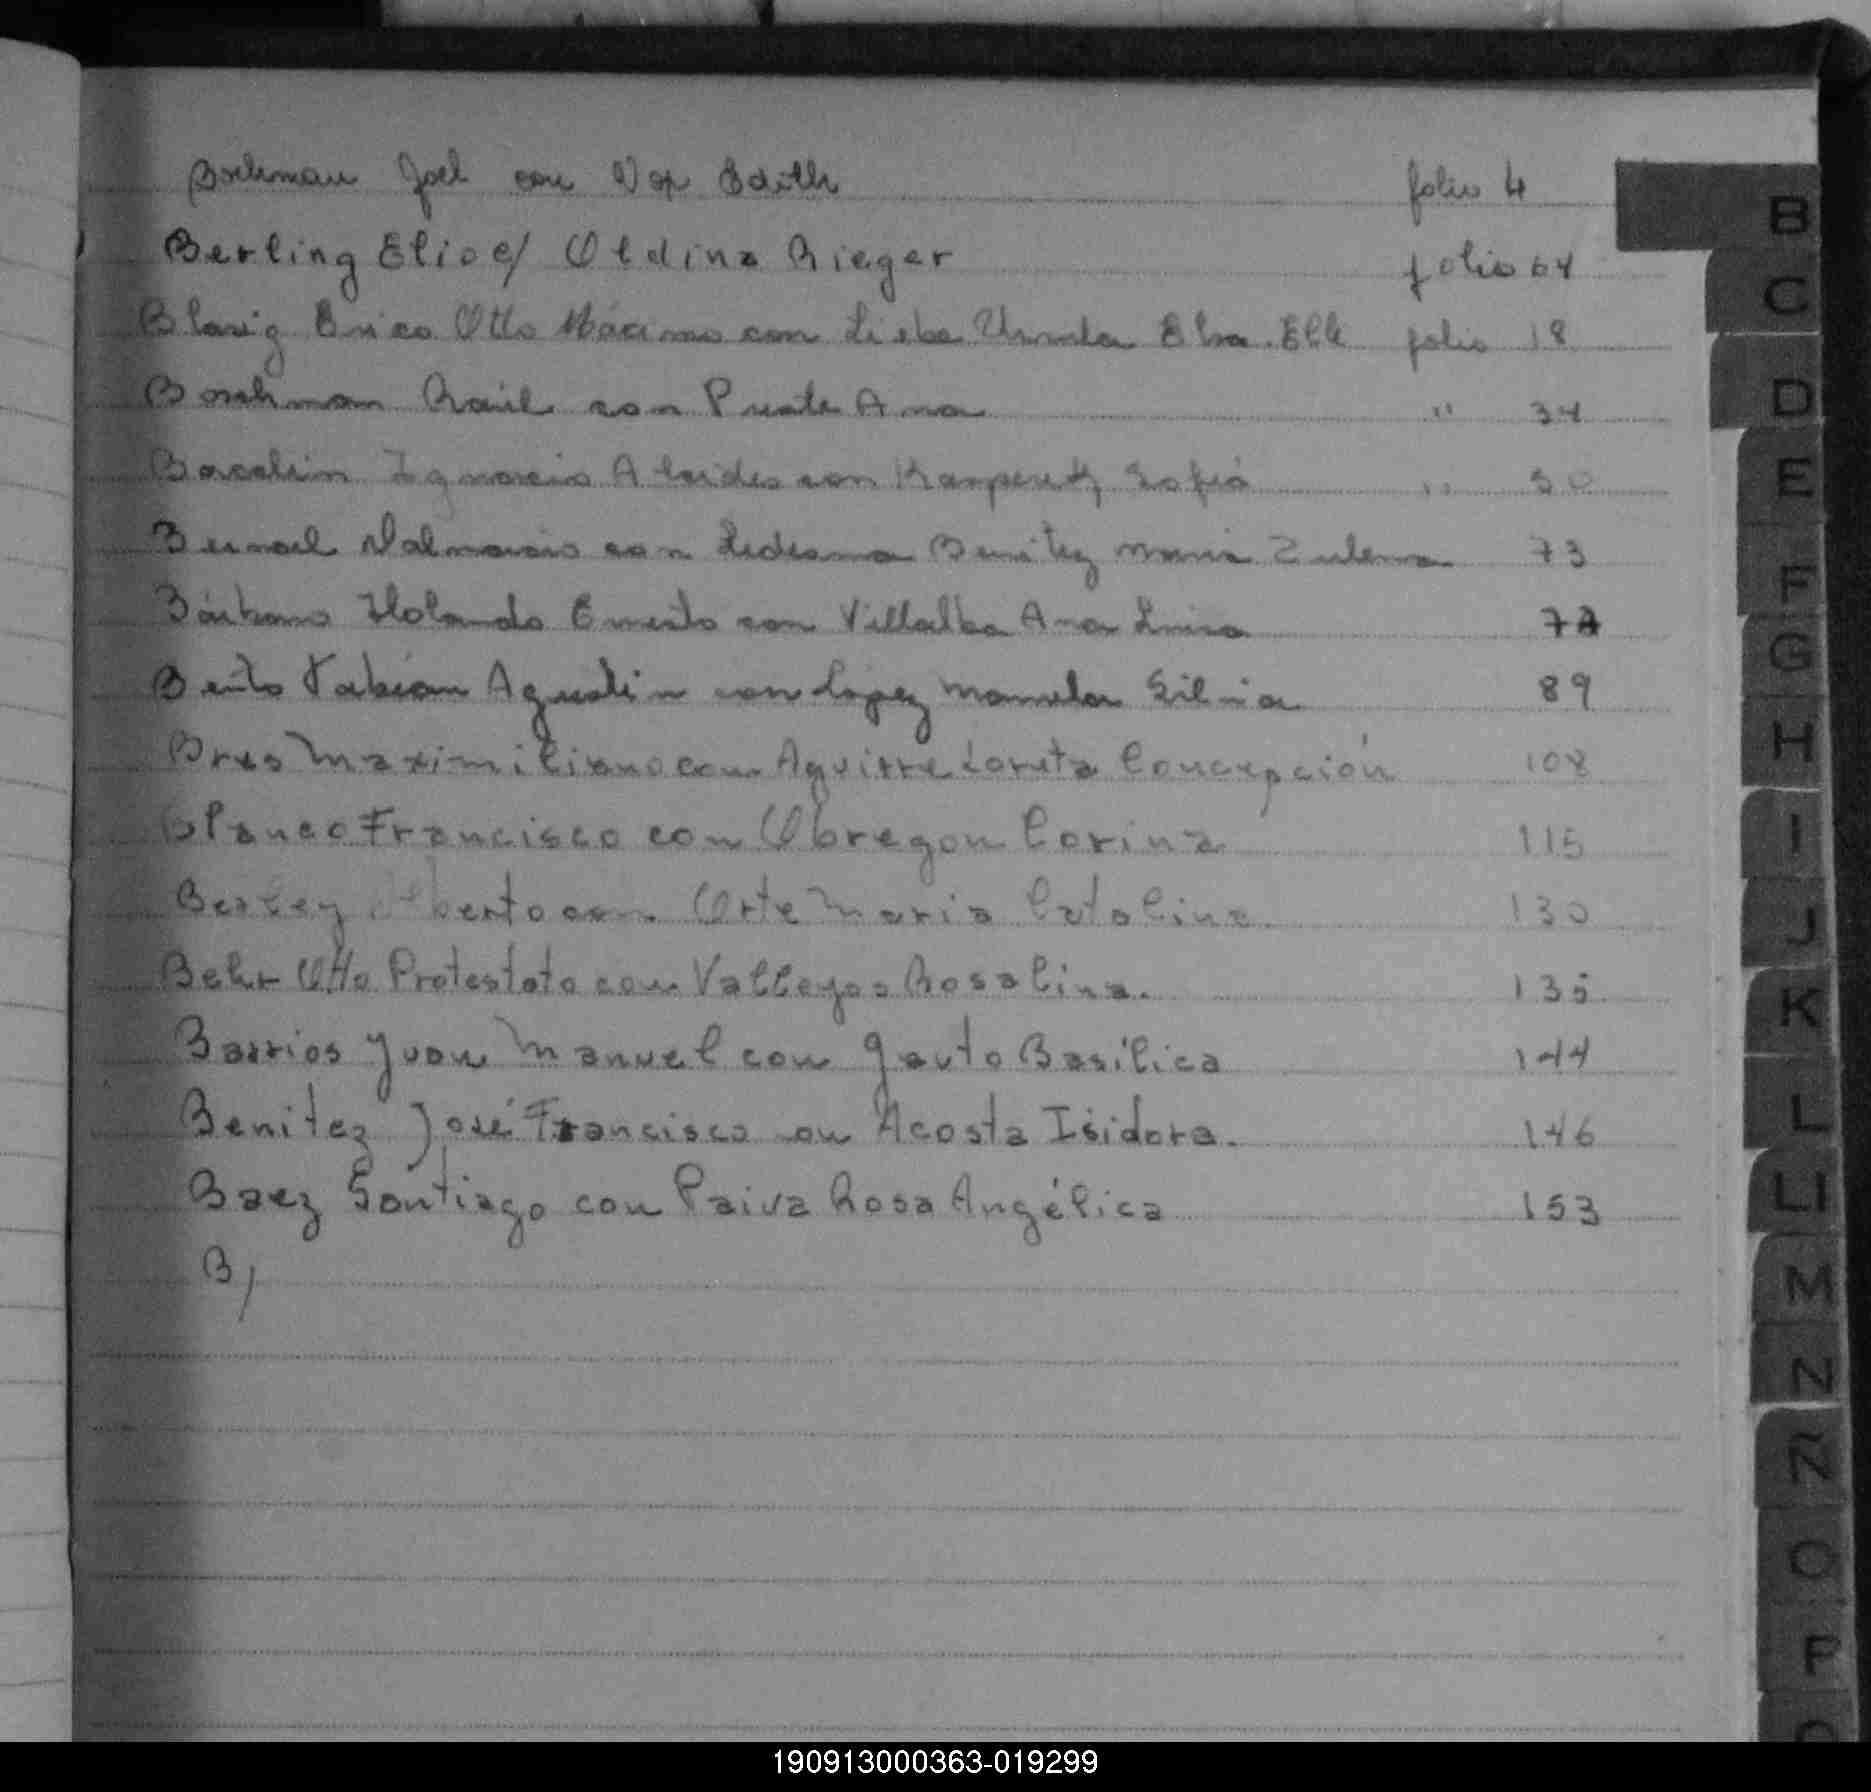 Joel con Vop Edith folio 4
Berling Elio c/ Oldina Rieger folio 64
Blasig Erico Otto Máximo con Lisba Ursula Elsa Elk folio 18
Boschman Raúl con Ana " 34
Ignacio Alcides con Sofía " 50
Dalmacio con Ledesma Benitez Maria Zulema 73
Holando Ernesto con Villalba Ana Luisa 77
Benito Fabián Agustin con López Manuela Silvia 89
Brus Maximiliano con Aguirre Loreta Concepción 108
Blanco Francisco con Obregon Corina 115
Alberto con Orte Maria Catalina 130
Behr Otto Protestato con Valleyos Rosalina. 135
Barrios Juan Manuel con Gauto Basílica 144
Benitez José Francisco con Acosta Isidora. 146
Baez Santiago con Paiva Rosa Angélica 153
B/
B
C
D
E
F
G
H
I
J
K
L
Ll
M
N
Ñ
O
P
190913000363-019299